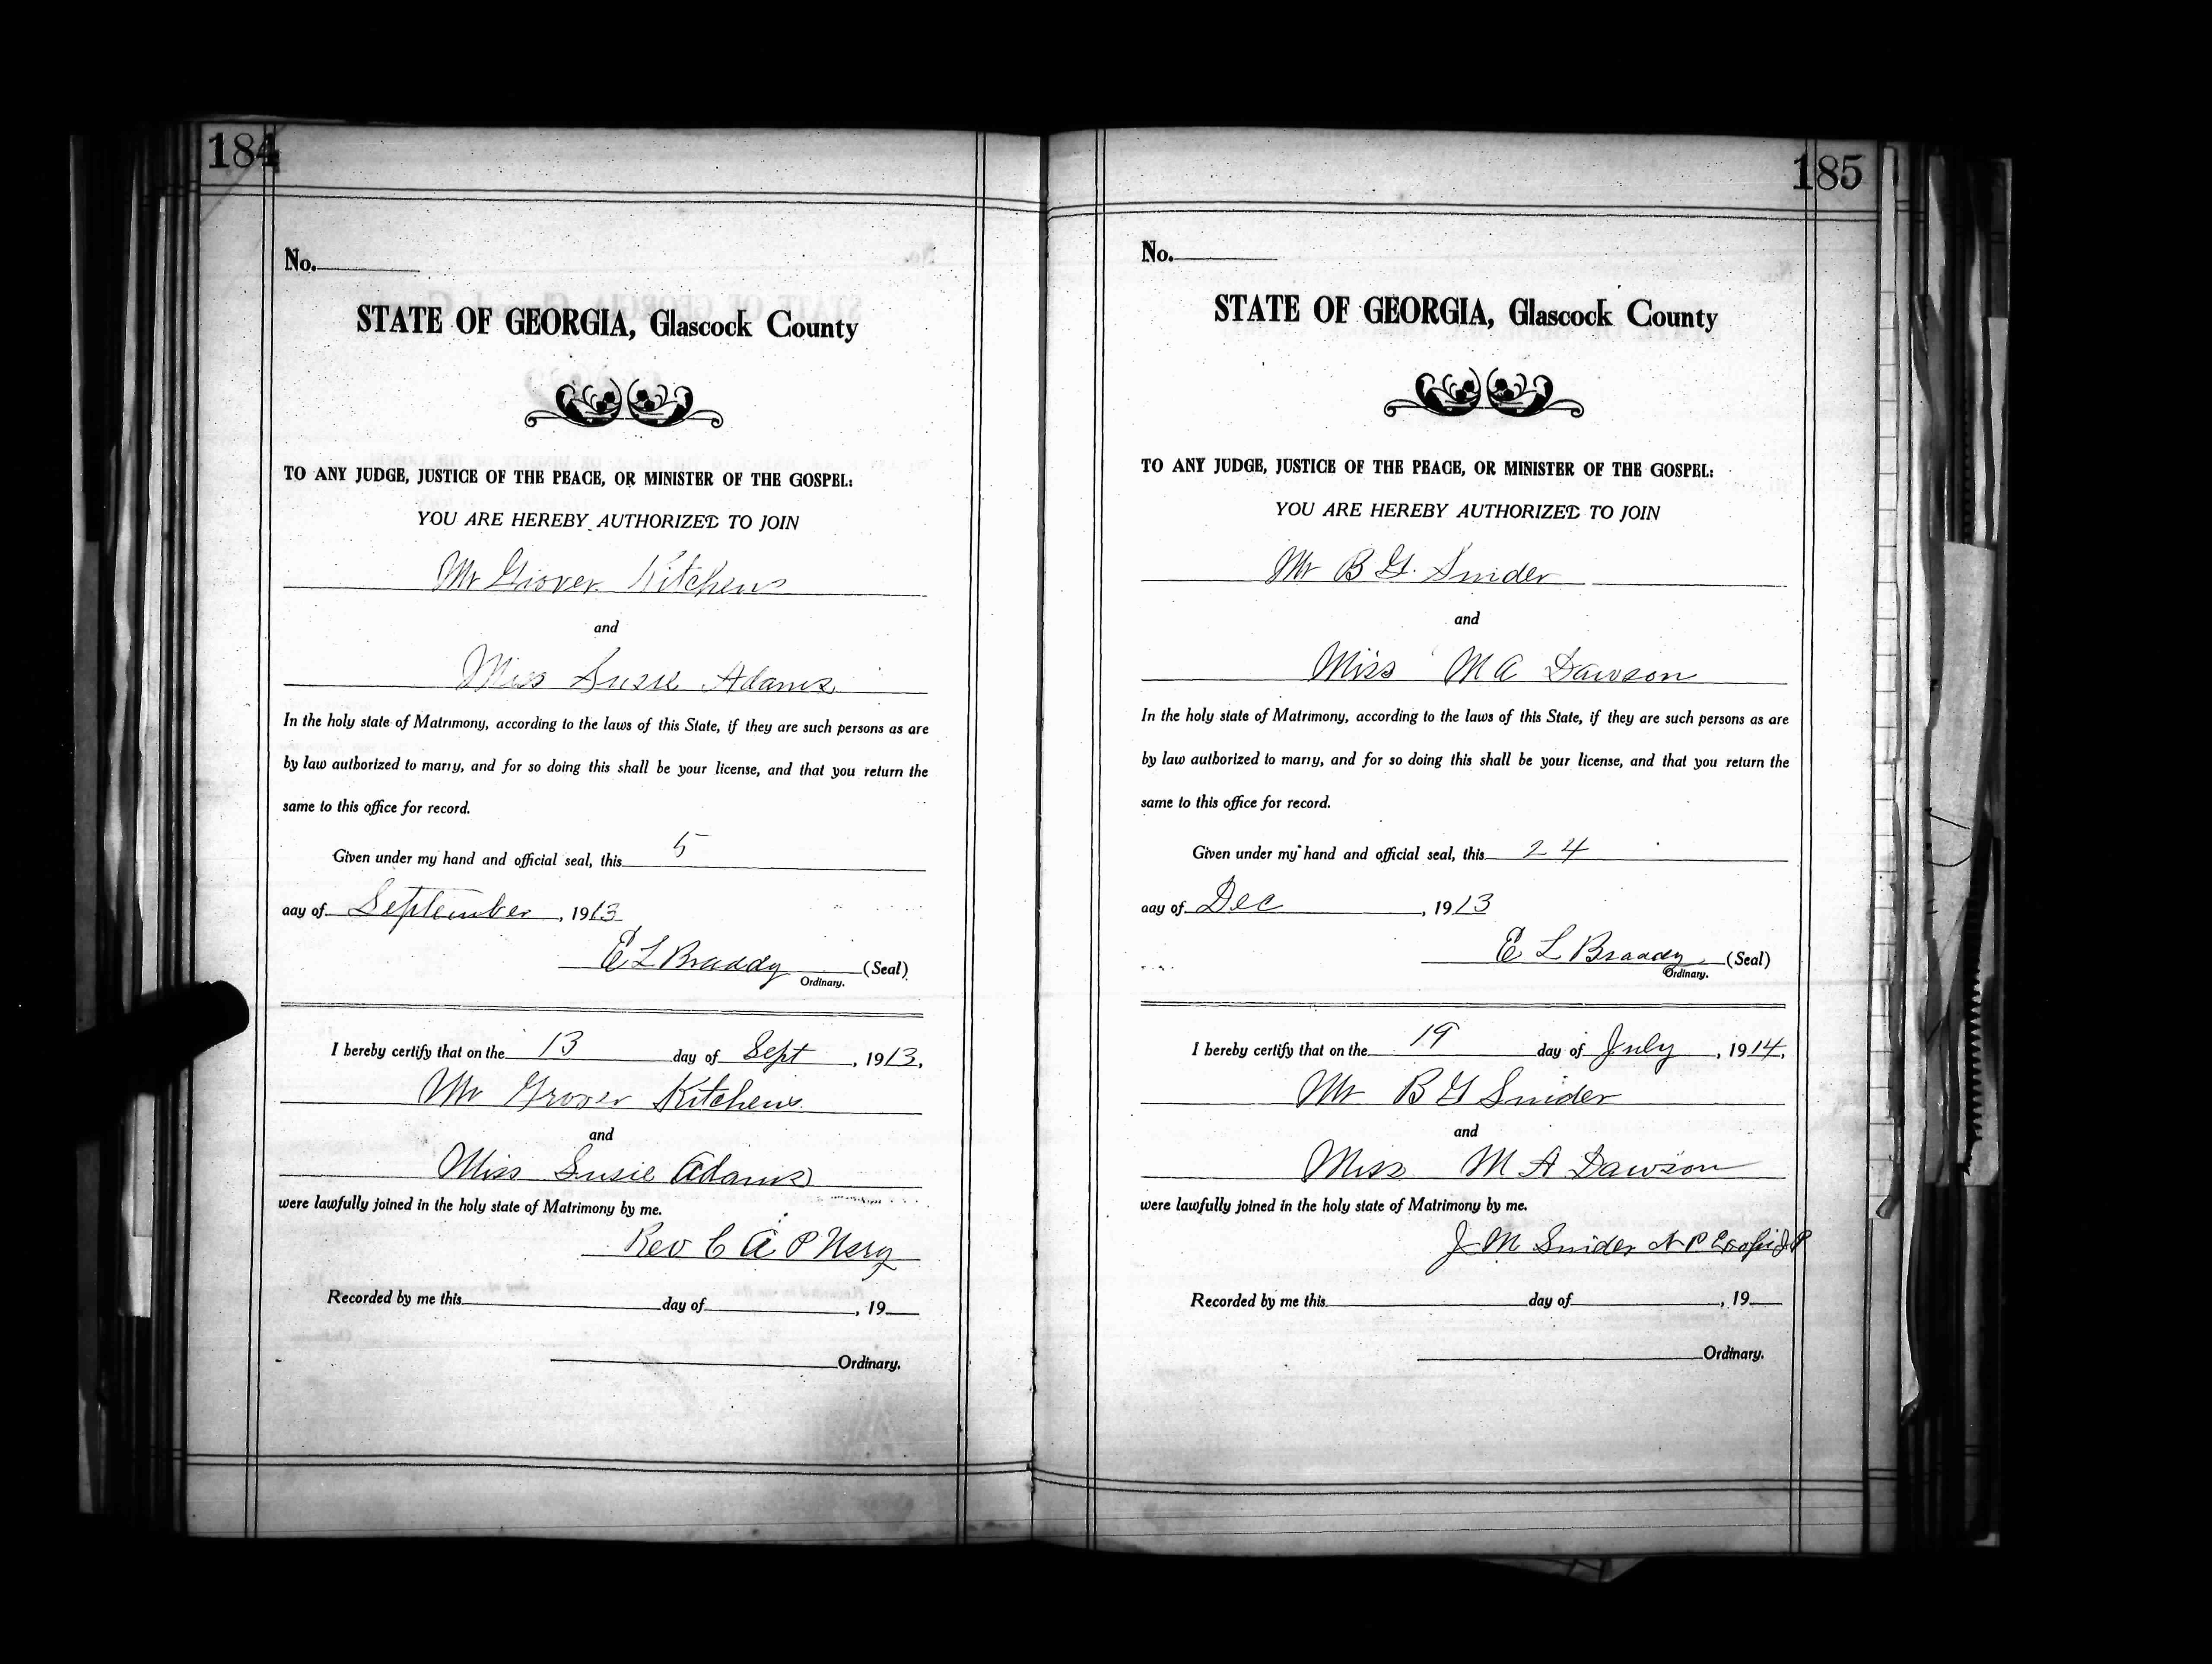 184
No.
STATE OF GEORGIA, Glascock County
TO ANY JUDGE, JUSTICE OF THE PEACE, OR MINISTER OF THE GOSPEL:
YOU ARE HEREBY AUTHORIZED TO JOIN
Mr Grover Kitchens
and
Miss Susie Adams
In the holy state of Matrimony, according to the laws of this State, if they are such persons as are
by law authorized to marry, and for so doing this shall be your license, and that you return the
same to this office for record.
Given under my hand and official seal, this 5
day of September, 1913
E L Braddy (Seal)
Ordinary.
I hereby certify that on the 13 day of Sept, 1913.
Mr Grover Kitchens
and
Miss Susie Adams
were lawfully joined in the holy state of Matrimony by me.
Rev C A P
Recorded by me this day of , 19
Ordinary.
185
No.
STATE OF GEORGIA, Glascock County
TO ANY JUDGE, JUSTICE OF THE PEACE, OR MINISTER OF THE GOSPEL:
YOU ARE HEREBY AUTHORIZED TO JOIN
Mr B G. Snider
and
Miss M A Dawson
In the holy state of Matrimony, according to the laws of this State, if they are such persons as are
by law authorized to marry, and for so doing this shall be your license, and that you return the
same to this office for record.
Given under my hand and official seal, this 24
day of Dec , 1913
E L Braddy. (Seal)
Ordinary.
I hereby certify that on the 19 day of July , 1914.
Mr B G Snider
and
Miss M A Dawson
were lawfully joined in the holy state of Matrimony by me.
J M Snider N P
Recorded by me this day of , 19
Ordinary.